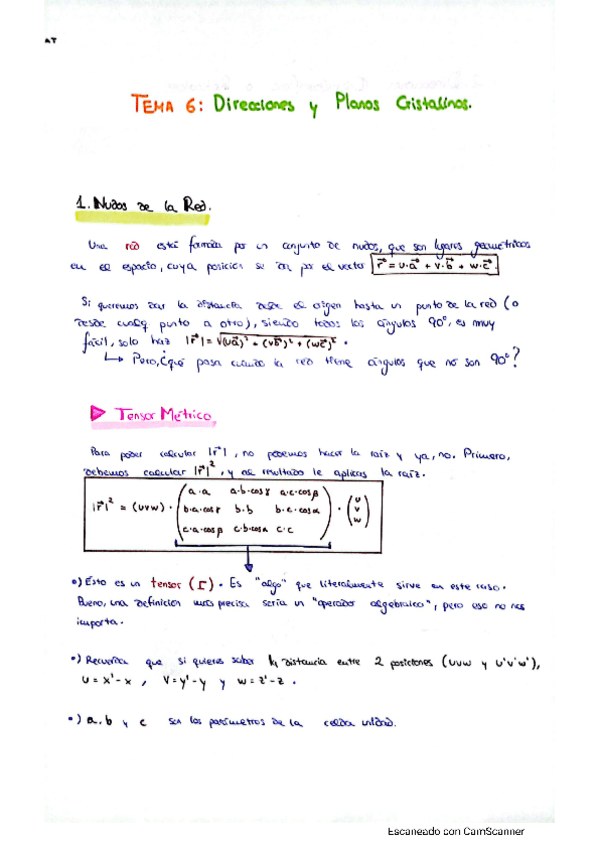 AT
TEMA 6: Direcciones y Planos Cristalinos.
1. Nudos de la Red.
Una red está formada por un conjunto de nudos, que son lugares geométricos
en el espacio, cuya posición se da por el vector r⃗ = u·a⃗ + v·b⃗ + w·c⃗.
Si queremos dar la distancia desde el origen hasta un punto de la red (o
desde cualq punto a otro), siendo todos los ángulos 90°, es muy
fácil, solo haz |r⃗| = √(ua⃗)² + (vb⃗)² + (wc⃗)² .
↳ Pero, ¿qué pasa cuando la red tiene ángulos que no son 90°?
▶ Tensor Métrico.
Para poder calcular |r⃗|, no podemos hacer la raíz y ya, no. Primero,
debemos calcular |r⃗|², y al resultado le aplicas la raíz.
a·a a·b·cosγ a·c·cosβ u
|r⃗|² = (uvw) · b·a·cosγ b·b b·c·cosα · v
c·a·cosβ c·b·cosα c·c w
•) Esto es un tensor (Γ). Es "algo" que literalmente sirve en este caso.
Bueno, una definición más precisa sería un "operador algebraico", pero eso no nos
importa.
•) Recuerda que si quieres saber la distancia entre 2 posiciones (uvw y u'v'w'),
u = x'-x , v = y'-y y w = z'-z .
•) a, b y c son los parámetros de la celda unidad.
Escaneado con CamScanner